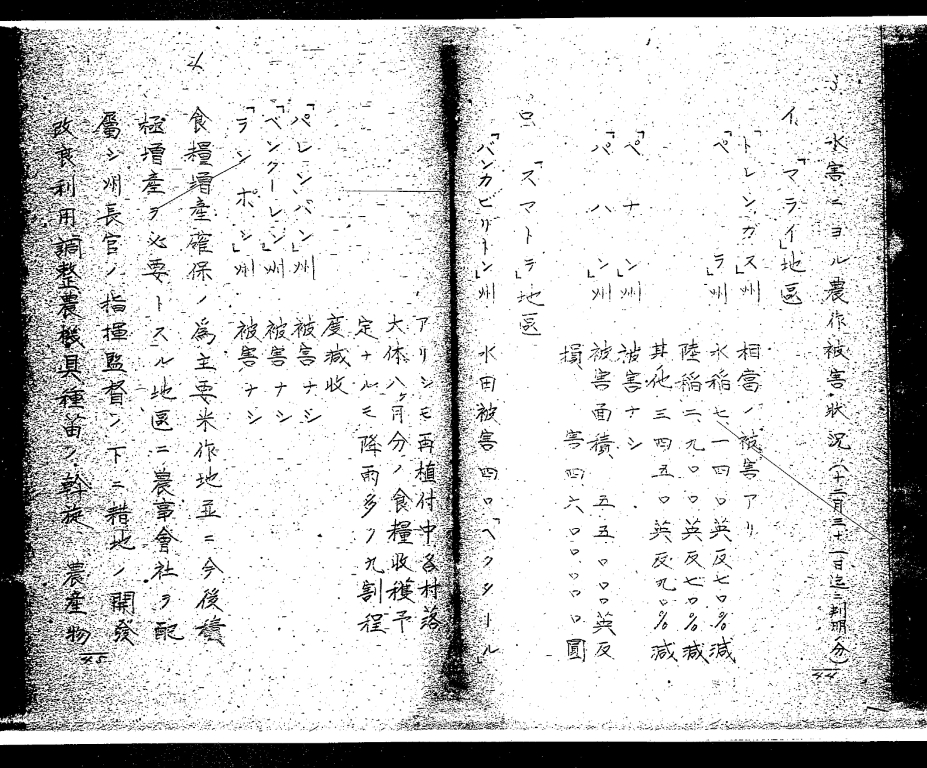 3、水害ニヨル農作被害狀況(十二月三十一日迄ニ判明分)
イ、「マライ」地區
「トレンガヌ」州 相當ノ被害アリ
「ペラ」州 水稻七一四〇英反七〇%減
陸稻二、九〇〇英反七〇%減
其他三四五〇英反九〇%減
「ペナン」州 被害ナシ
「パハン」州 被害面積 五五〇〇〇英反
損害四六〇〇〇〇〇圓
44
ロ、「スマトラ」地區
「バンカビリトン」州 水田被害四〇「ヘクタール」
アリシモ再植付中各村落
大体八ヶ月分ノ食糧收穫予
定ナルモ降雨多ク九割程
度減收
「パレンバン」州 被害ナシ
「ベンクーレン」州 被害ナシ
「ランポン」州 被害ナシ
4、
食糧増産確保ノ爲主要米作地並ニ今後積
極増産ヲ必要トスル地區ニ農事會社ヲ配
屬シ州長官ノ指揮監督ノ下ニ耕地ノ開發
改良利用調整農機具種苗ノ斡旋 農産物
45